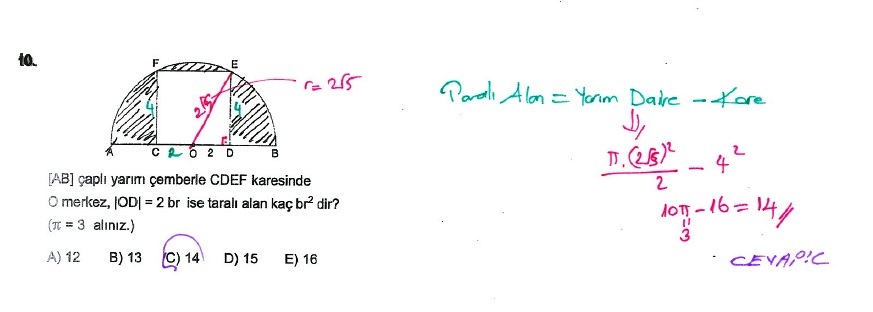 10.
F E
r = 2√5
4 2√5 4
A C 2 O 2 D B
[AB] çaplı yarım çemberle CDEF karesinde
O merkez, |OD| = 2 br ise taralı alan kaç br² dir?
(π = 3 alınız.)
A) 12 B) 13 C) 14 D) 15 E) 16
Taralı Alan = Yarım Daire - Kare
π.(2√5)²/2 - 4²
10π - 16 = 14 //
3
CEVAP: C